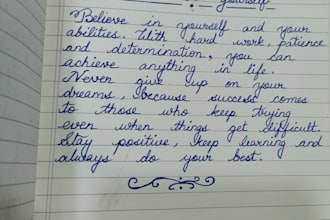 yourself
Believe in yourself and your
abilities. With hard work, patience
and determination, you can
achieve anything in life.
Never give up on your
dreams, because success comes
to those who keep trying
even when things get difficult.
Stay positive, keep learning and
always do your best.